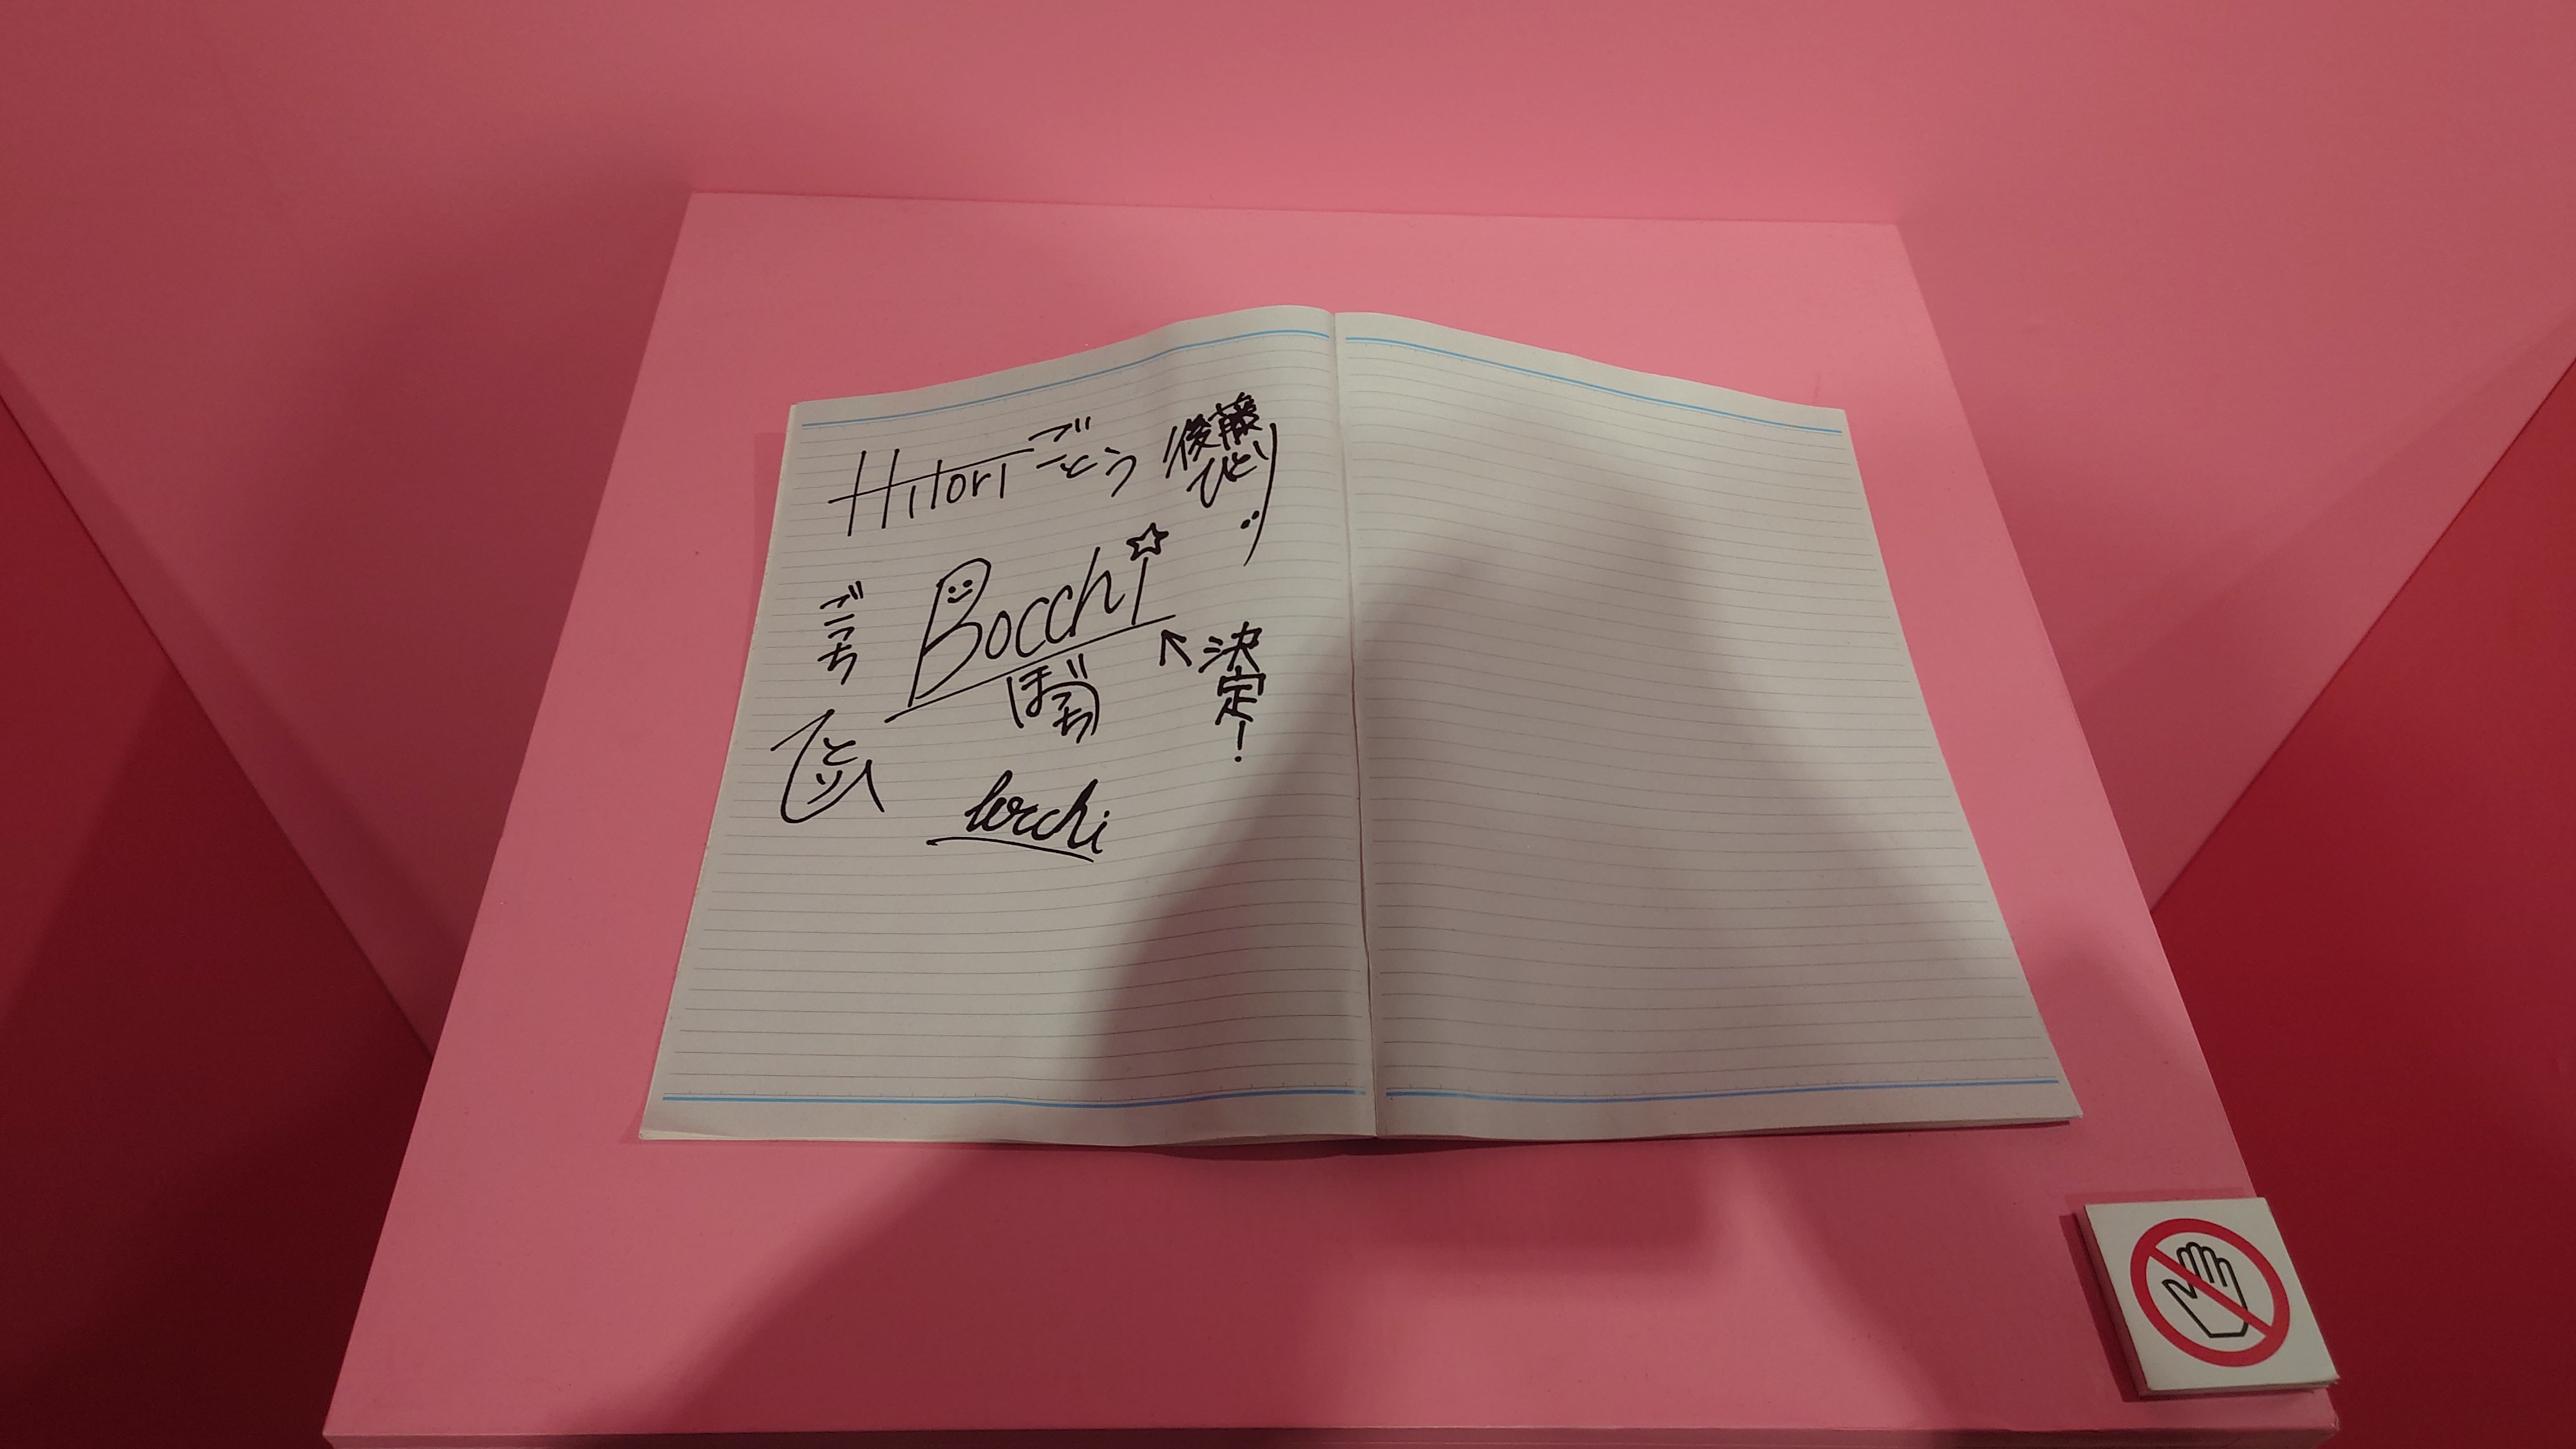 Hitori ごとう
後藤
ひとり
Bocchi
ごっち
ぼっち
決定!
ひとり
bocchi